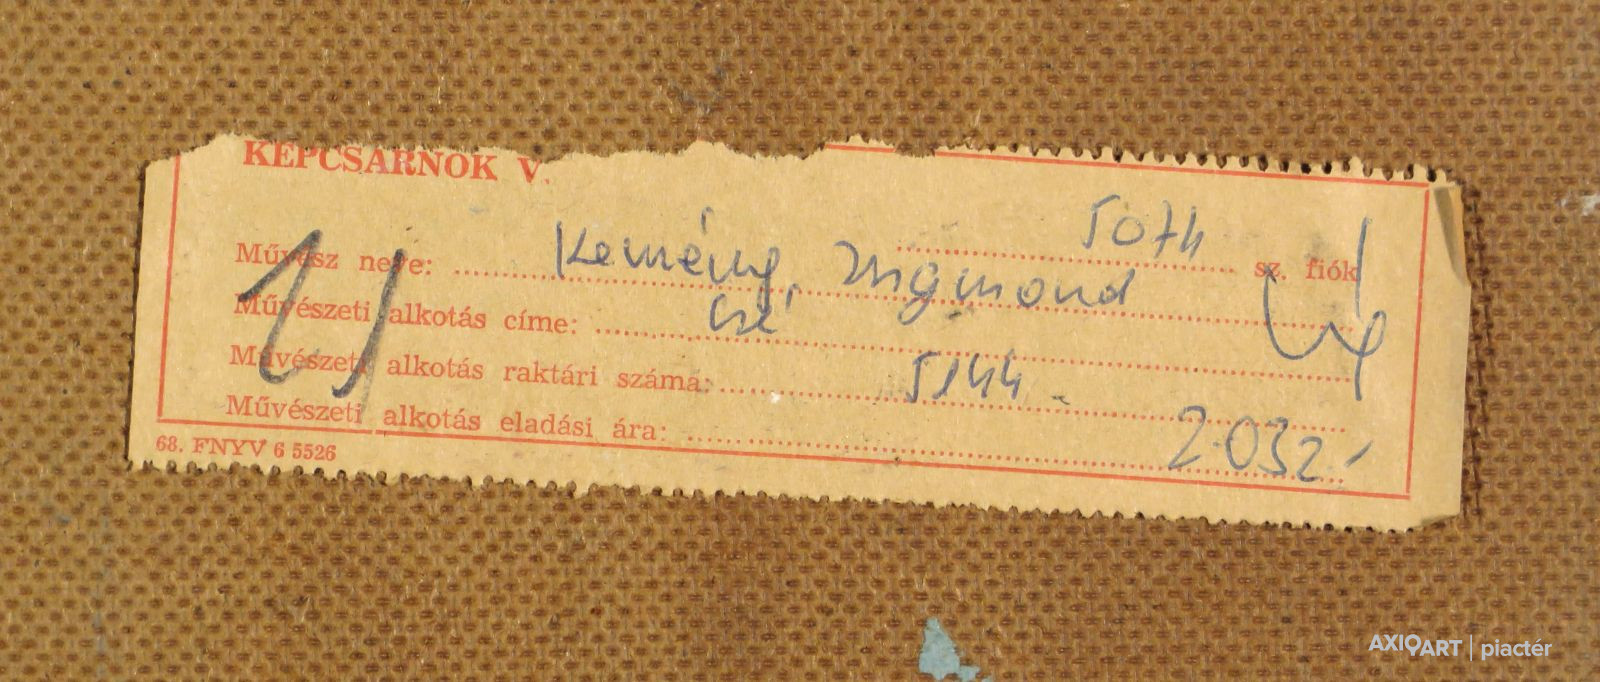 KÉPCSARNOK V.
5074 sz. fiók
Művész neve: Kemény Zsigmond
Művészeti alkotás címe:
Művészeti alkotás raktári száma: 5144
Művészeti alkotás eladási ára: 2.032.-
68. FNYV 6 5526
AXIOART | piactér